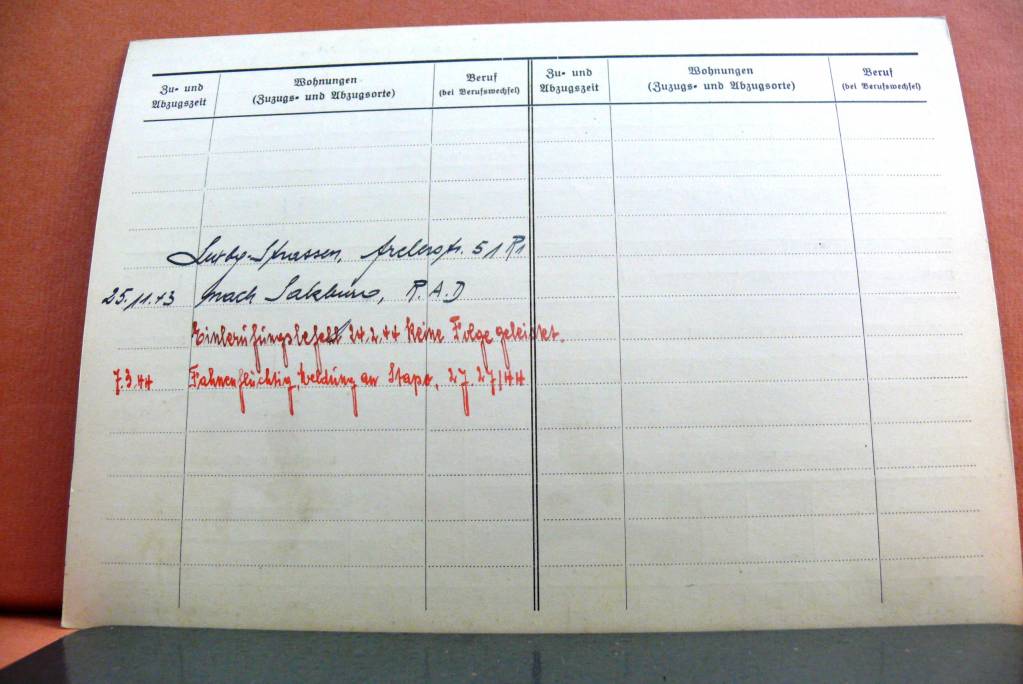 Zu- und Abzugszeit
Wohnungen
(Zuzugs- und Abzugsorte)
Beruf
(bei Berufswechsel)
Zu- und Abzugszeit
Wohnungen
(Zuzugs- und Abzugsorte)
Beruf
(bei Berufswechsel)
Strassen, 51
25.11.43 nach Salzburg, R.A.D
Einberufungsbefehl 24.2.44 keine Folge geleistet.
7.3.44 Fahnenflüchtig, Meldung an Stapo, 27